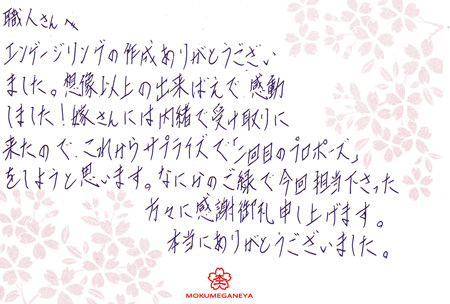 職人さんへ
エンゲージリングの作成ありがとうござい
ました。想像以上の出来ばえで感動
しました!嫁さんには内緒で受け取りに
来たので、これからサプライズで「二回目のプロポーズ」
をしようと思います。なにかのご縁で今回担当下さった
方々に感謝御礼申し上げます。
本当にありがとうございました。
MOKUMEGANEYA